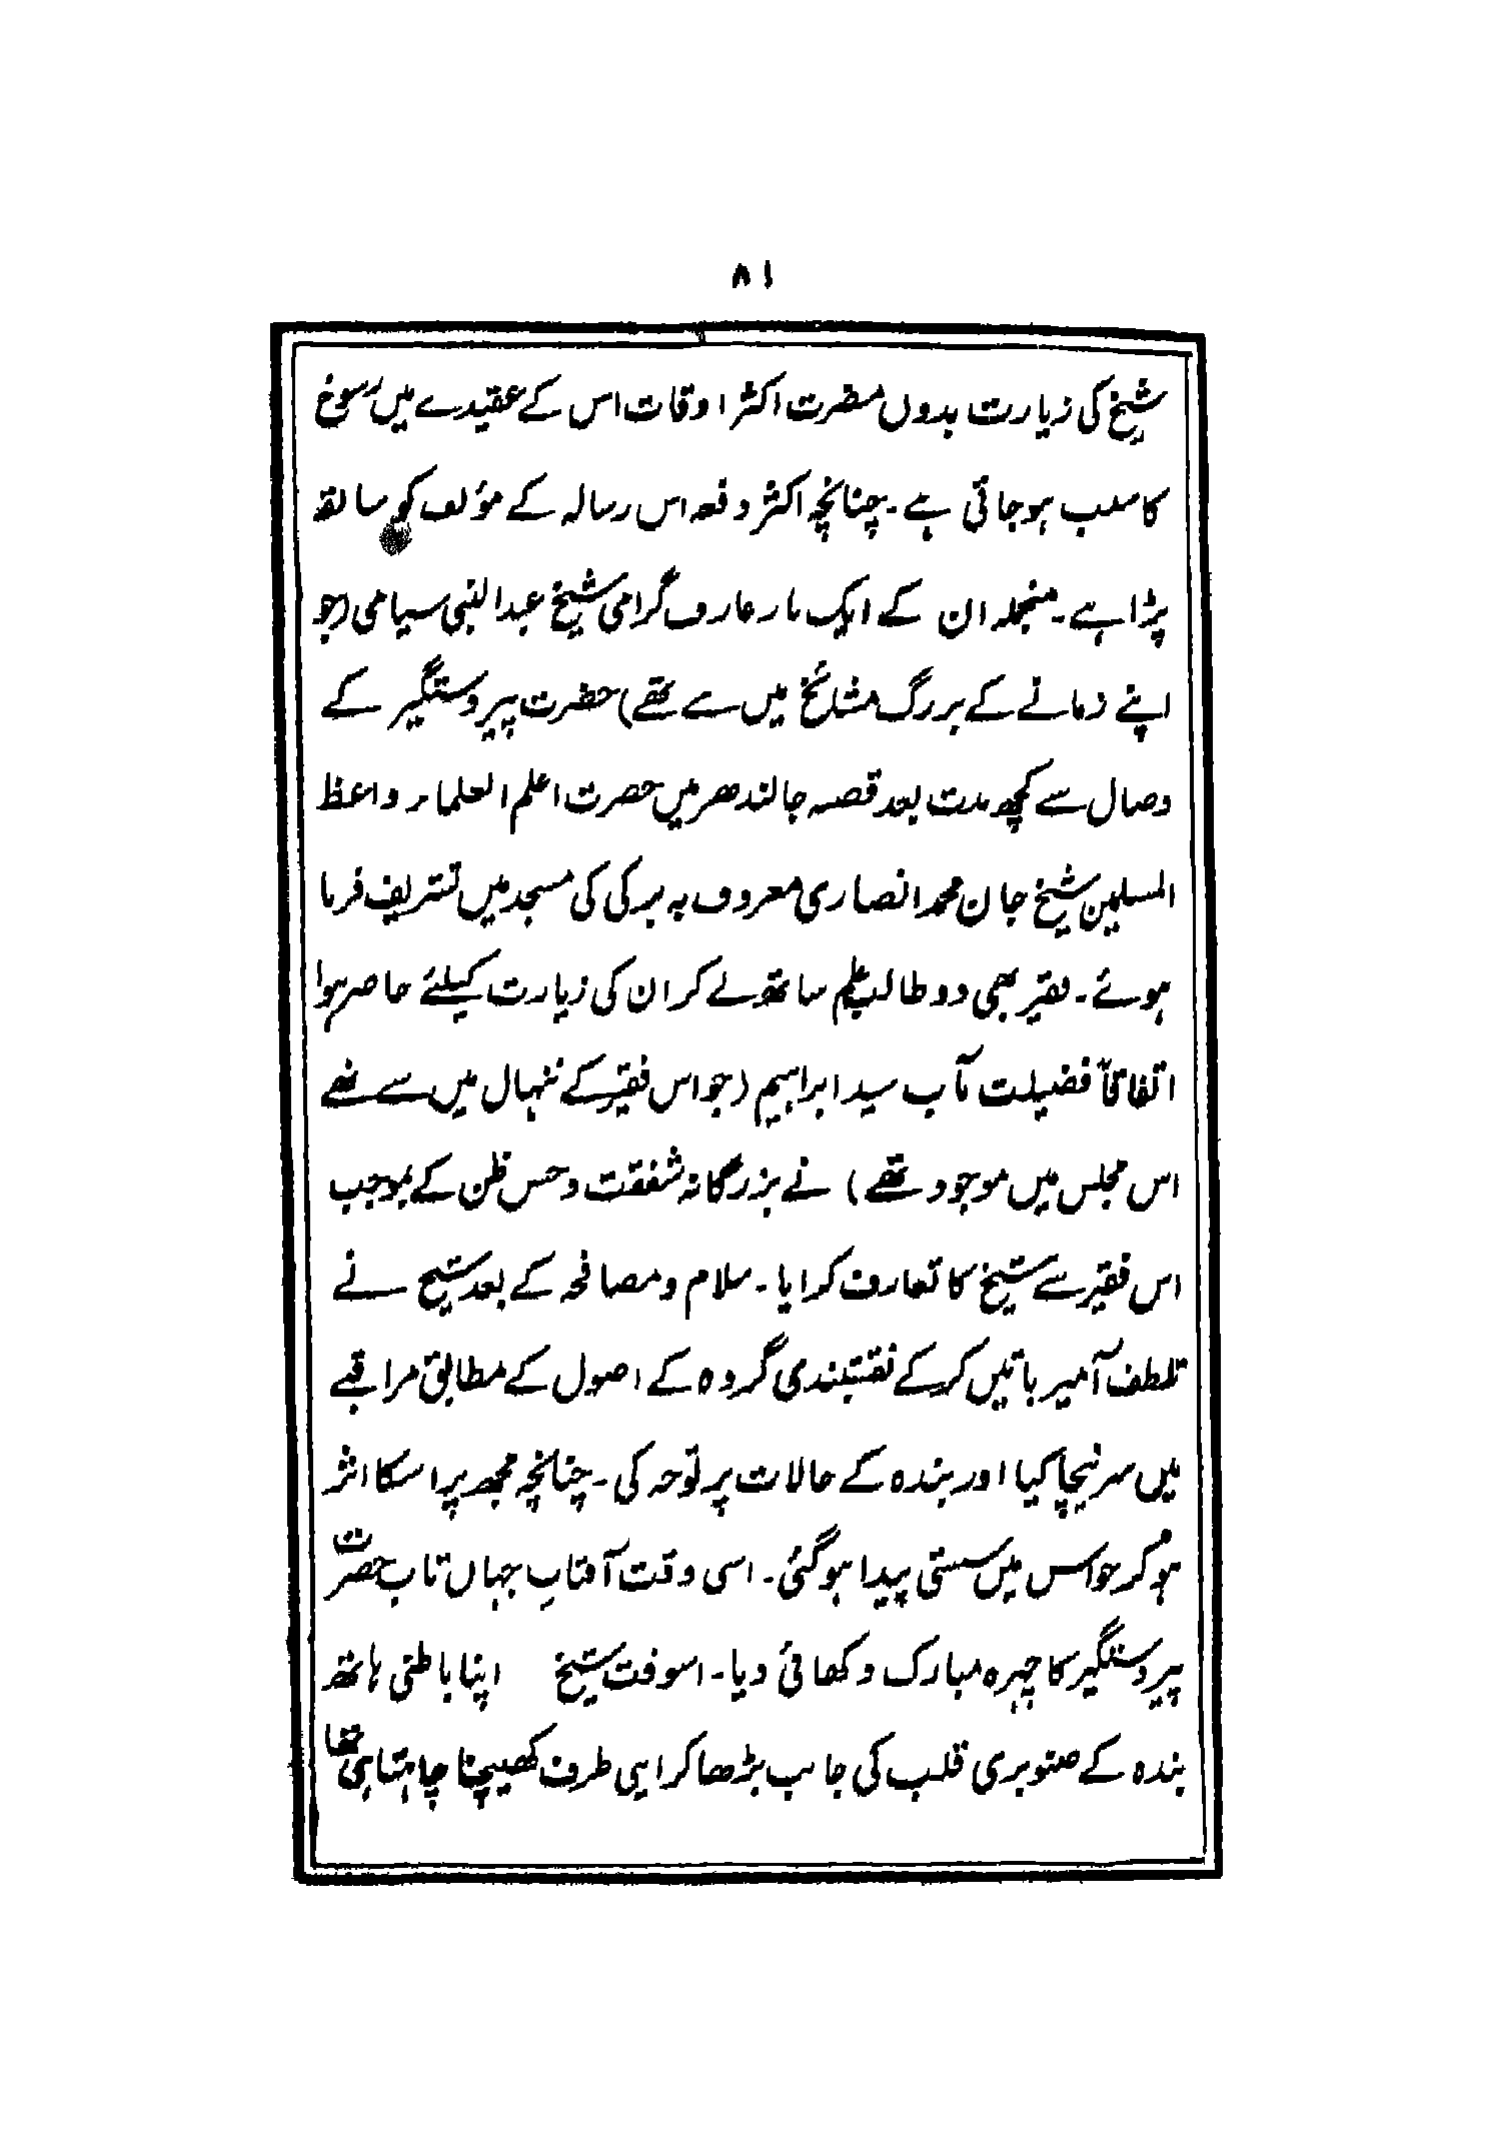 ۸۱
شیخ کی زیارت بدوں مضرت اکثر اوقات اس کے عقیدے میں رسوخ
کا سلب ہو جاتی ہے۔ چنانچہ اکثر دفعہ اس رسالہ کے مؤلف کو سابقہ
پڑا ہے۔ منجملہ ان کے ایک بار عارف گرامی شیخ عبدالنبی سیامی (جو
اپنے زمانے کے بزرگ مشائخ میں سے تھے) حضرت پیر دستگیر کے
وصال سے کچھ مدت بعد قصبہ جالندھر میں حضرت اعلم العلماء واعظ
المسلمین شیخ جان محمد انصاری معروف بہ برکی کی مسجد میں تشریف فرما
ہوئے۔ فقیر بھی دو طالب علم ساتھ لے کر ان کی زیارت کیلئے حاضر ہوا
اتفاقاً فضیلت مآب سید ابراہیم (جو اس فقیر کے ننہال میں سے تھے
اس مجلس میں موجود تھے) نے بزرگانہ شفقت و حسن ظن کے بموجب
اس فقیر سے شیخ کا تعارف کرایا۔ سلام و مصافحہ کے بعد شیخ نے
تلطف آمیز باتیں کر کے نقشبندی گروہ کے اصول کے مطابق مراقبے
میں سر نیچا کیا اور بندہ کے حالات پر توجہ کی۔ چنانچہ مجھ پر اسکا اثر
ہو کر حواس میں سستی پیدا ہو گئی۔ اسی وقت آفتابِ جہاں تاب حضرت
پیر دستگیر کا چہرہ مبارک دکھائی دیا۔ اسوقت شیخ اپنا باطنی ہاتھ
بندہ کے صنوبری قلب کی جانب بڑھا کر اپنی طرف کھینچنا چاہتا ہی تھا